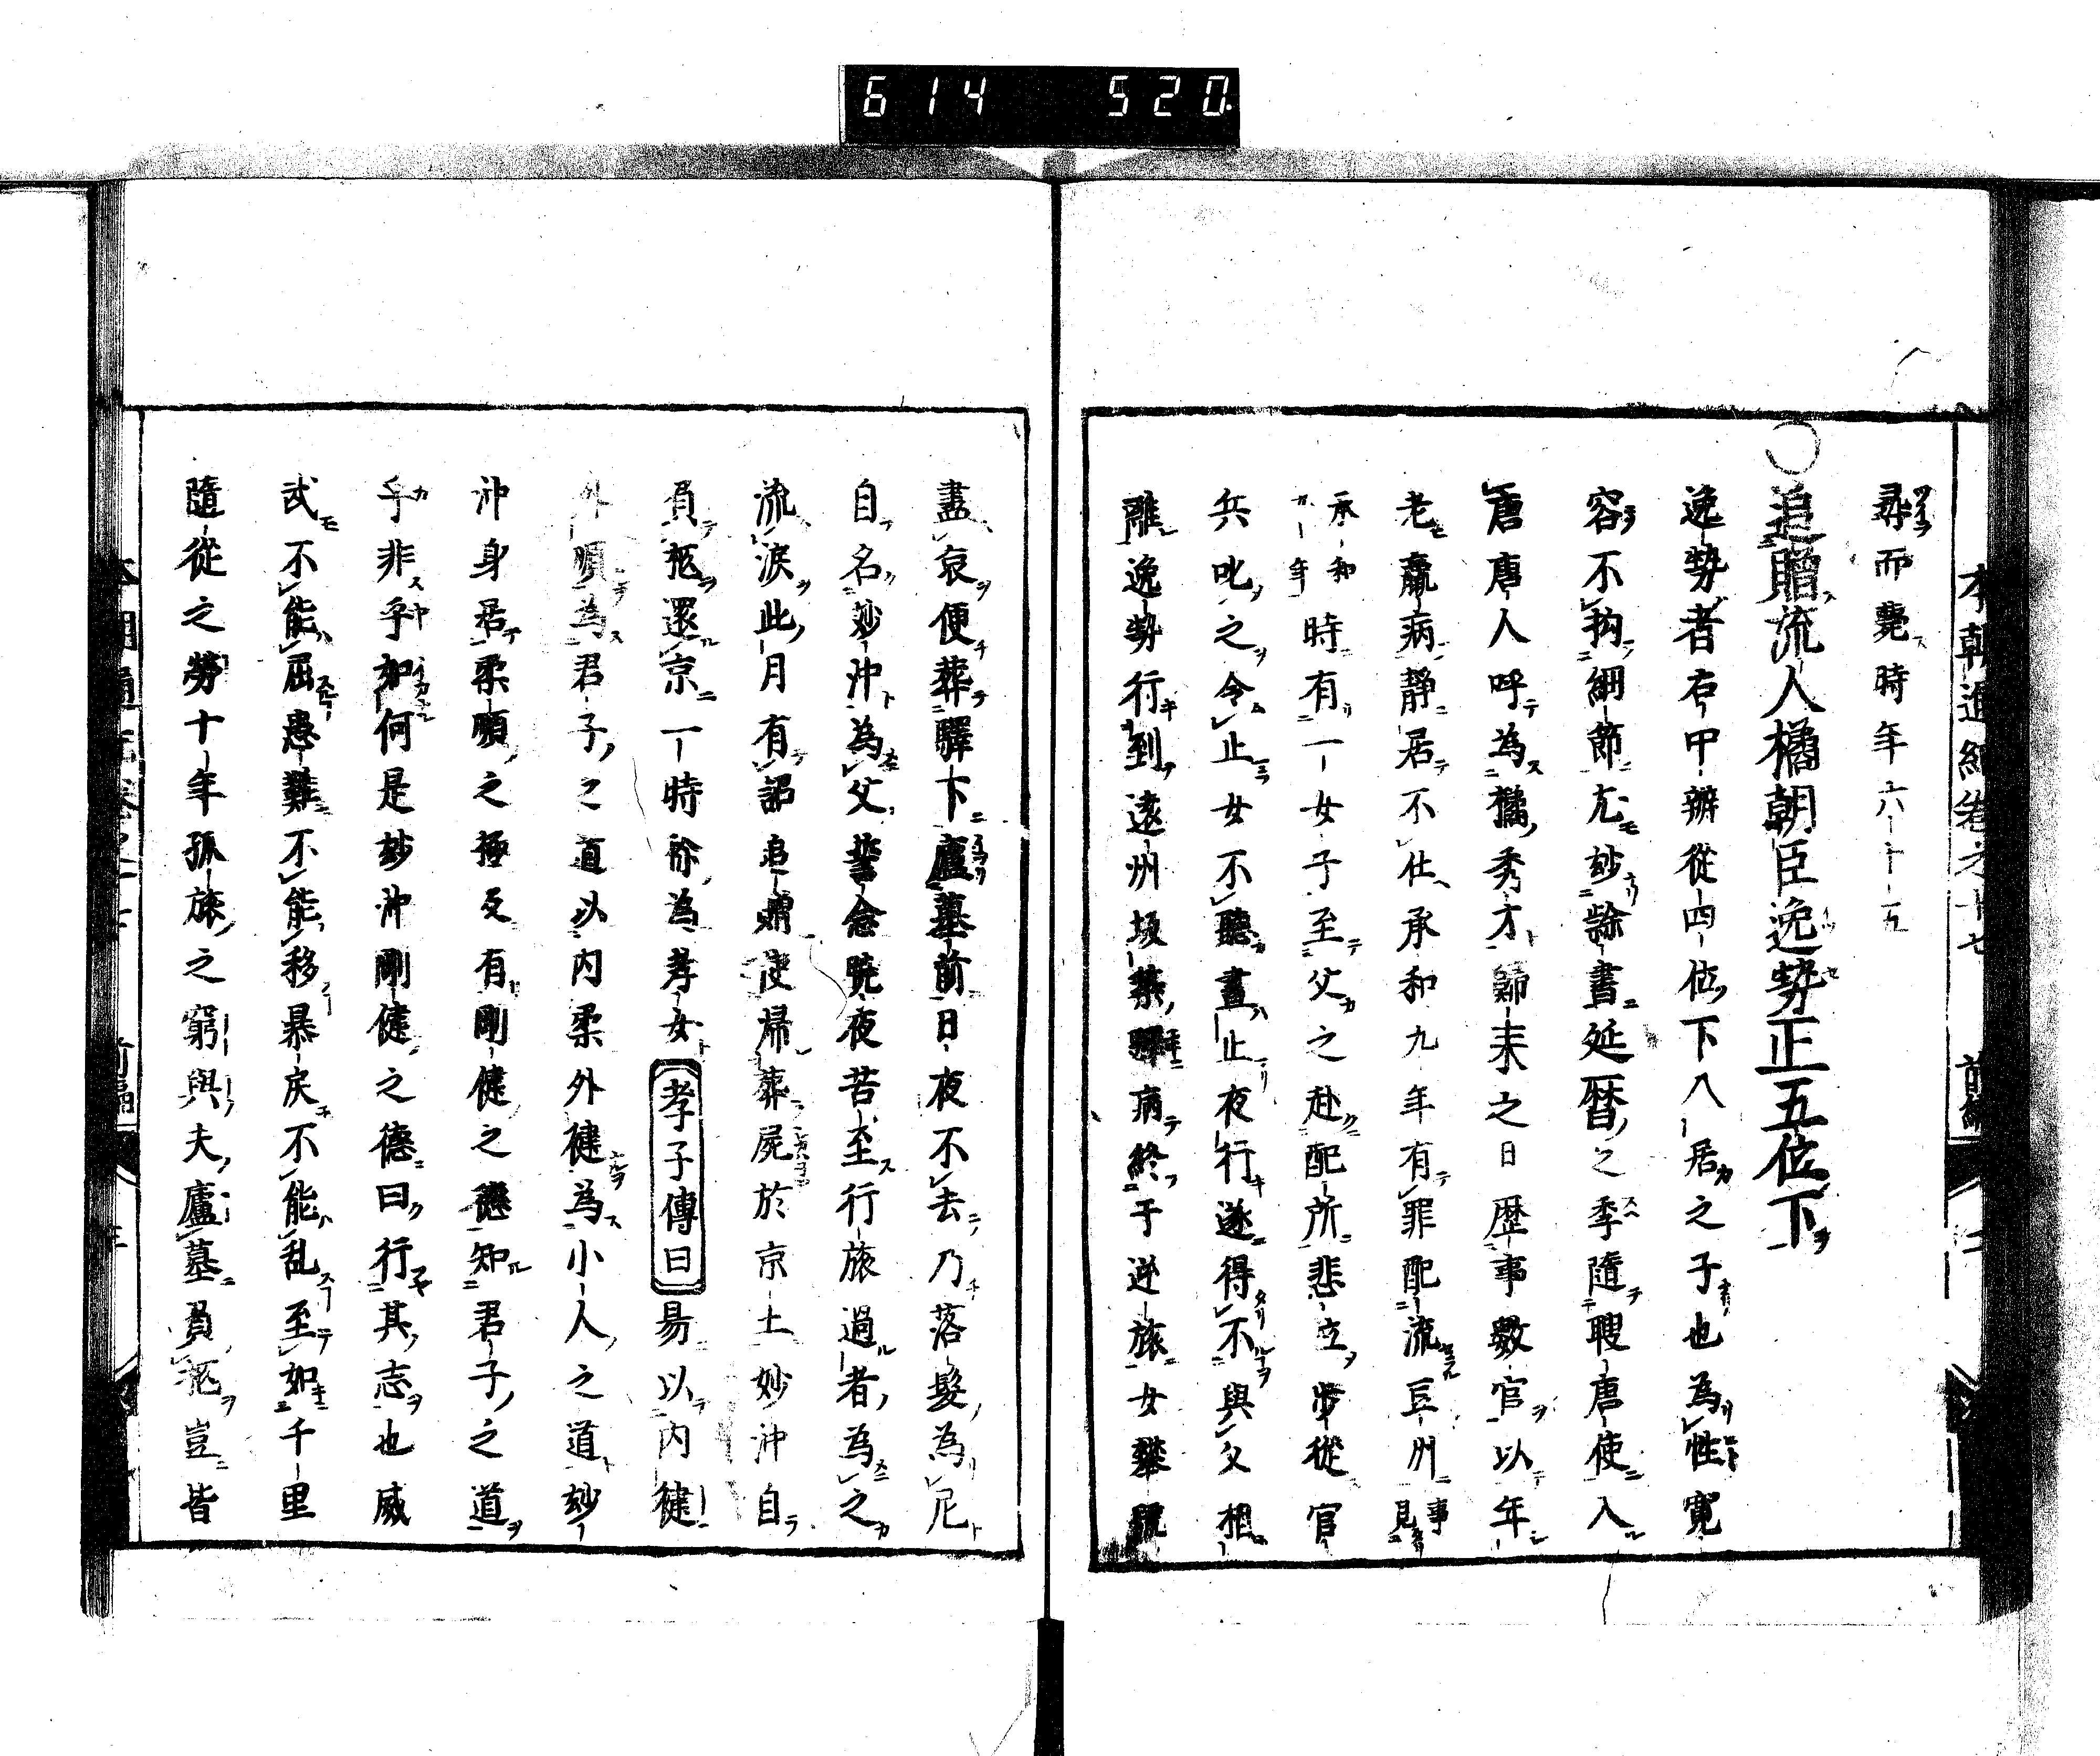 614 520
尋而薨時年六十五
○追贈流人橘朝臣逸勢正五位下
逸勢者右中辨從四位下入居之子也為性寛
容不拘細節尤妙隷書延暦之季隨聘唐使入
唐唐人呼為橘秀才歸来之日歴事數官以年
老羸病靜居不仕承和九年有罪配流豆州事見
承和九年時有一女子至父之赴配所悲泣步從官
兵叱之令止女不聽晝止夜行遂得不與父相
離逸勢行到遠州坂築驛病終于逆旅女攀號
盡哀便葬驛下廬墓前日夜不去乃落髮為尼
自名妙冲為父誓念曉夜苦至行旅過者為之
流涙此月有詔追贈使歸葬屍於京土妙冲自
負柩還京一時称為孝女孝子傳曰易以内健
外順為君子之道以内柔外健為小人之道妙
冲身居柔順之極反有剛健之德知君子之道
乎非乎如何是妙冲剛健之德曰行其志也威
武不能屈患難不能移暴戻不能乱至如千里
隨從之勞十年孤旅之窮與夫廬墓負柩豈皆